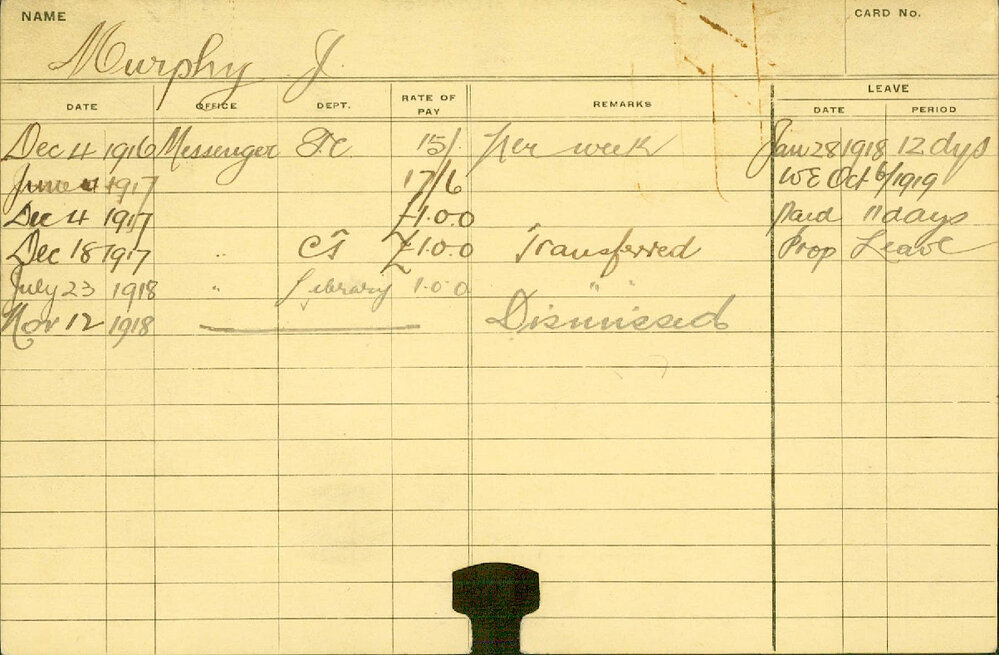 NAME
CARD No.
Murphy J.
DATE OFFICE DEPT. RATE OF PAY REMARKS LEAVE
DATE PERIOD
Dec 4 1916 Messenger 15/. per week Jan 28 1918 12 dys
June 4 1917 17/6 WE Oct 6/1919
Dec 4 1917 £1.0.0 Paid 11 days
Dec 18 1917 " CI £1.0.0 Transferred Prop Leave
July 23 1918 " Library 1.0.0 " "
Nov 12 1918 Dismissed